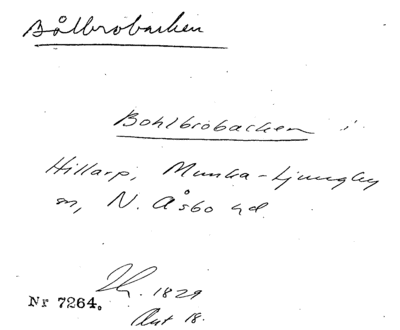 Bålbrobacken
Bohlbrobacken i
Hillarp, Munka-Ljungby
sn, N. Åsbo hd
1829
Akt 18.
Nr 7264.